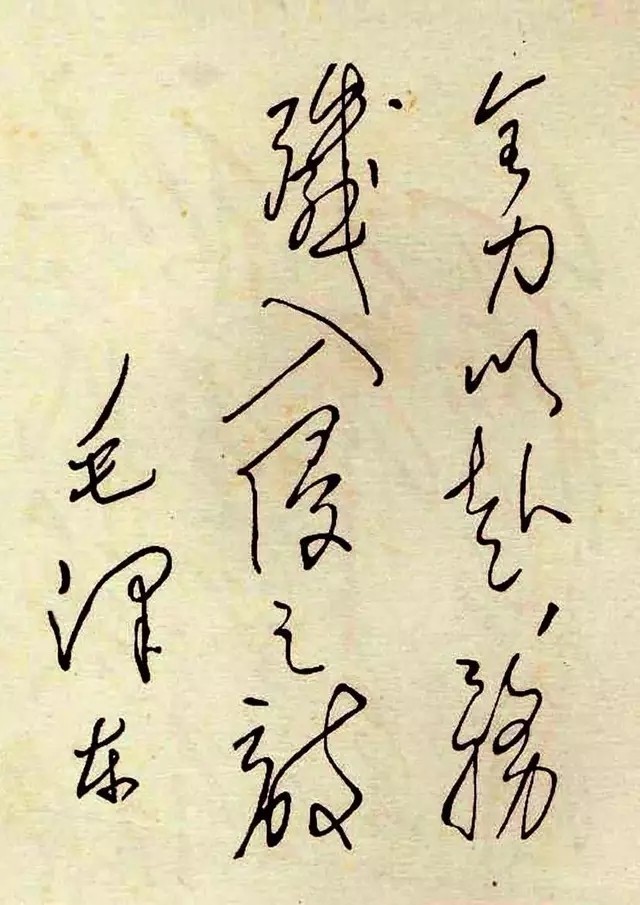 全力以赴、務
殲入侵之敵
毛澤东